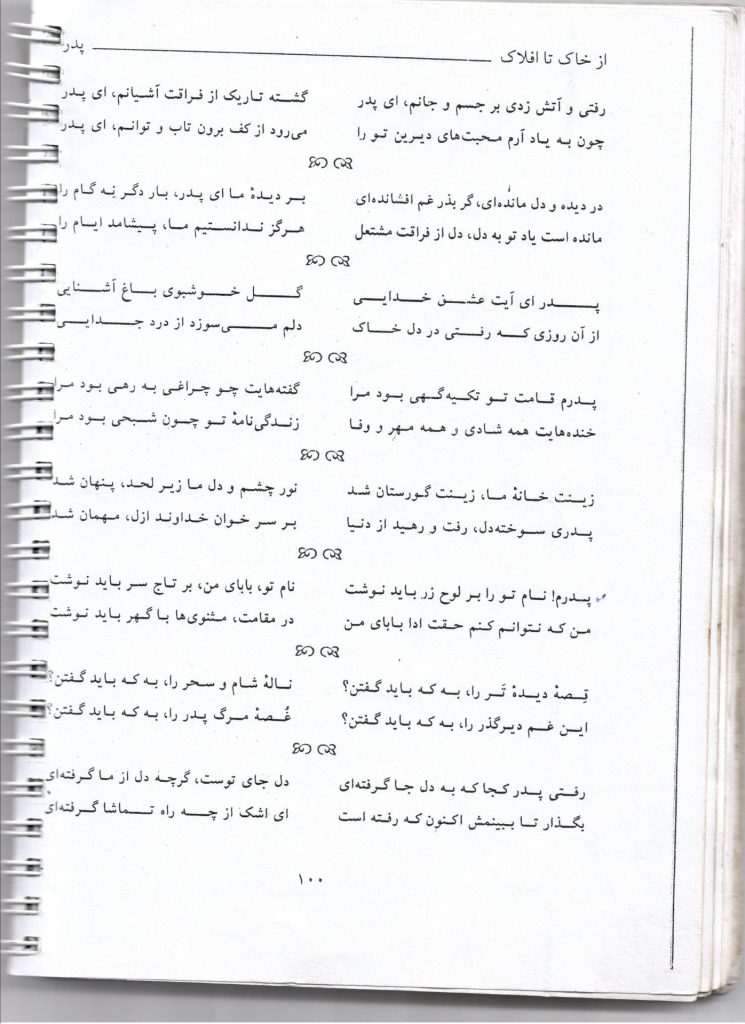 از خاک تا افلاک پدر
رفتی و آتش زدی بر جسم و جانم، ای پدر گشته تاریک از فراقت آشیانم، ای پدر
چون به یاد آرم محبت‌های دیرین تو را می‌رود از کف برون تاب و توانم، ای پدر
در دیده و دل مانده‌ای، گر بذر غم افشانده‌ای بر دیدهٔ ما ای پدر، بار دگر نِه گام را
مانده است یاد تو به دل، دل از فراقت مشتعل هرگز ندانستیم ما، پیشامد ایام را
پدر ای آیت عشق خدایی گل خوشبوی باغ آشنایی
از آن روزی که رفتی در دل خاک دلم می‌سوزد از درد جدایی
پدرم قامت تو تکیه‌گهی بود مرا گفته‌هایت چو چراغی به رهی بود مرا
خنده‌هایت همه شادی و همه مهر و وفا زندگی‌نامهٔ تو چون شبحی بود مرا
زینت خانهٔ ما، زینت گورستان شد نور چشم و دل ما زیر لحد، پنهان شد
پدری سوخته‌دل، رفت و رهید از دنیا بر سر خوان خداوند ازل، مهمان شد
پدرم! نام تو را بر لوح زر باید نوشت نام تو، بابای من، بر تاج سر باید نوشت
من که نتوانم کنم حقت ادا بابای من در مقامت، مثنوی‌ها با گهر باید نوشت
قِصهٔ دیدهٔ تَر را، به که باید گفتن؟ نالهٔ شام و سحر را، به که باید گفتن؟
این غم دیرگذر را، به که باید گفتن؟ غُصهٔ مرگ پدر را، به که باید گفتن؟
رفتی پدر کجا که به دل جا گرفته‌ای دل جای توست، گرچه دل از ما گرفته‌ای
بگذار تا ببینمش اکنون که رفته است ای اشک از چه راه تماشا گرفته‌ای
۱۰۰